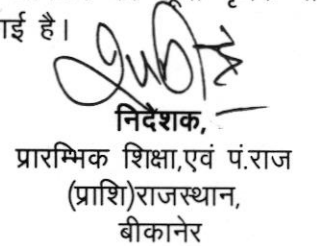 ाई है।
निदेशक,
प्रारम्भिक शिक्षा,एवं पं.राज
(प्राशि)राजस्थान,
बीकानेर